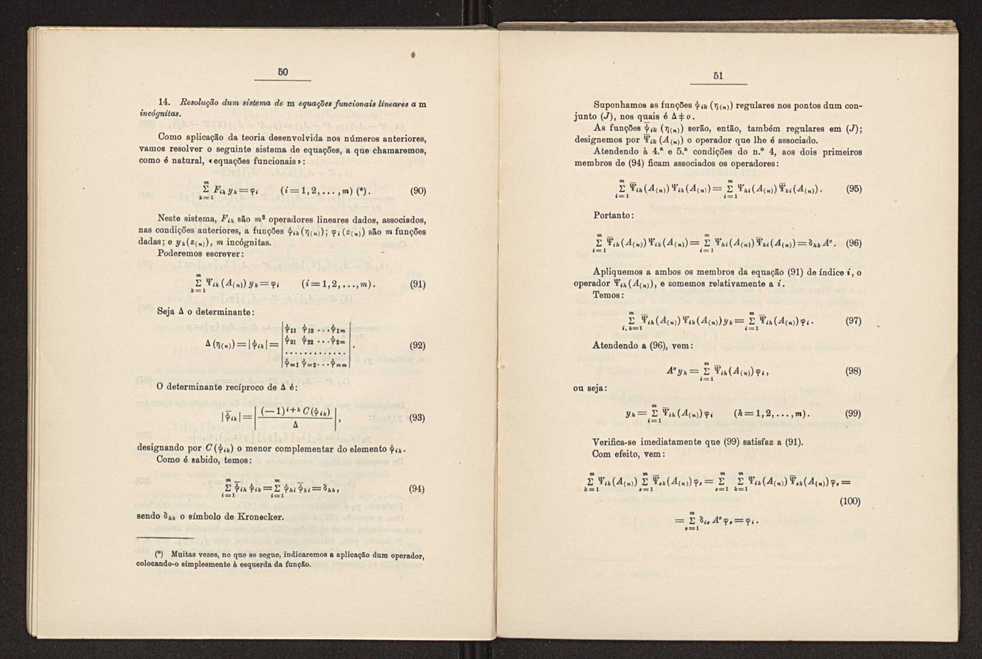 50
14. Resolução dum sistema de m equações funcionais lineares a m
incógnitas.
Como aplicação da teoria desenvolvida nos números anteriores,
vamos resolver o seguinte sistema de equações, a que chamaremos,
como é natural, «equações funcionais»:
m Σ k=1 F_{ik} y_k = φ_i (i = 1, 2, ..., m) (*). (90)
Neste sistema, F_{ik} são m² operadores lineares dados, associados,
nas condições anteriores, a funções ψ_{ik}(η_{(n)}); φ_i(z_{(n)}) são m funções
dadas; e y_k(z_{(n)}), m incógnitas.
Poderemos escrever:
m Σ k=1 Ψ_{ik}(A_{(n)}) y_k = φ_i (i = 1, 2, ..., m). (91)
Seja Δ o determinante:
Δ(η_{(n)}) = |ψ_{ik}| = | ψ_{11} ψ_{12} ... ψ_{1m} ; ψ_{21} ψ_{22} ... ψ_{2m} ; ............. ; ψ_{m1} ψ_{m2} ... ψ_{mm} |. (92)
O determinante recíproco de Δ é:
|ψ̄_{ik}| = | (−1)^{i+k} C(ψ_{ik}) / Δ |, (93)
designando por C(ψ_{ik}) o menor complementar do elemento ψ_{ik}.
Como é sabido, temos:
m Σ i=1 ψ̄_{ih} ψ_{ik} = m Σ i=1 ψ_{hi} ψ̄_{ki} = δ_{hk}, (94)
sendo δ_{hk} o símbolo de Kronecker.
(*) Muitas vezes, no que se segue, indicaremos a aplicação dum operador,
colocando-o simplesmente à esquerda da função.
51
Suponhamos as funções ψ_{ik}(η_{(n)}) regulares nos pontos dum con-
junto (J), nos quais é Δ ≠ o.
As funções ψ̄_{ik}(η_{(n)}) serão, então, também regulares em (J);
designemos por Ψ̄_{ik}(A_{(n)}) o operador que lhe é associado.
Atendendo à 4.ª e 5.ª condições do n.º 4, aos dois primeiros
membros de (94) ficam associados os operadores:
m Σ i=1 Ψ̄_{ih}(A_{(n)}) Ψ_{ik}(A_{(n)}) = m Σ i=1 Ψ_{hi}(A_{(n)}) Ψ̄_{ki}(A_{(n)}). (95)
Portanto:
m Σ i=1 Ψ̄_{ih}(A_{(n)}) Ψ_{ik}(A_{(n)}) = m Σ i=1 Ψ_{hi}(A_{(n)}) Ψ̄_{ki}(A_{(n)}) = δ_{hk} A°. (96)
Apliquemos a ambos os membros da equação (91) de índice i, o
operador Ψ̄_{ih}(A_{(n)}), e somemos relativamente a i.
Temos:
m Σ i,k=1 Ψ̄_{ih}(A_{(n)}) Ψ_{ik}(A_{(n)}) y_k = m Σ i=1 Ψ̄_{ih}(A_{(n)}) φ_i. (97)
Atendendo a (96), vem:
A° y_h = m Σ i=1 Ψ̄_{ih}(A_{(n)}) φ_i, (98)
ou seja:
y_h = m Σ i=1 Ψ̄_{ih}(A_{(n)}) φ_i (h = 1, 2, ..., m). (99)
Verifica-se imediatamente que (99) satisfaz a (91).
Com efeito, vem:
m Σ k=1 Ψ_{ik}(A_{(n)}) m Σ s=1 Ψ̄_{sk}(A_{(n)}) φ_s = m Σ s=1 m Σ k=1 Ψ_{ik}(A_{(n)}) Ψ̄_{sk}(A_{(n)}) φ_s =
(100)
= m Σ s=1 δ_{is} A° φ_s = φ_i.